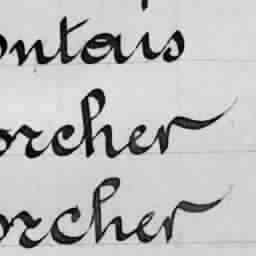 ontais
orcher
orcher